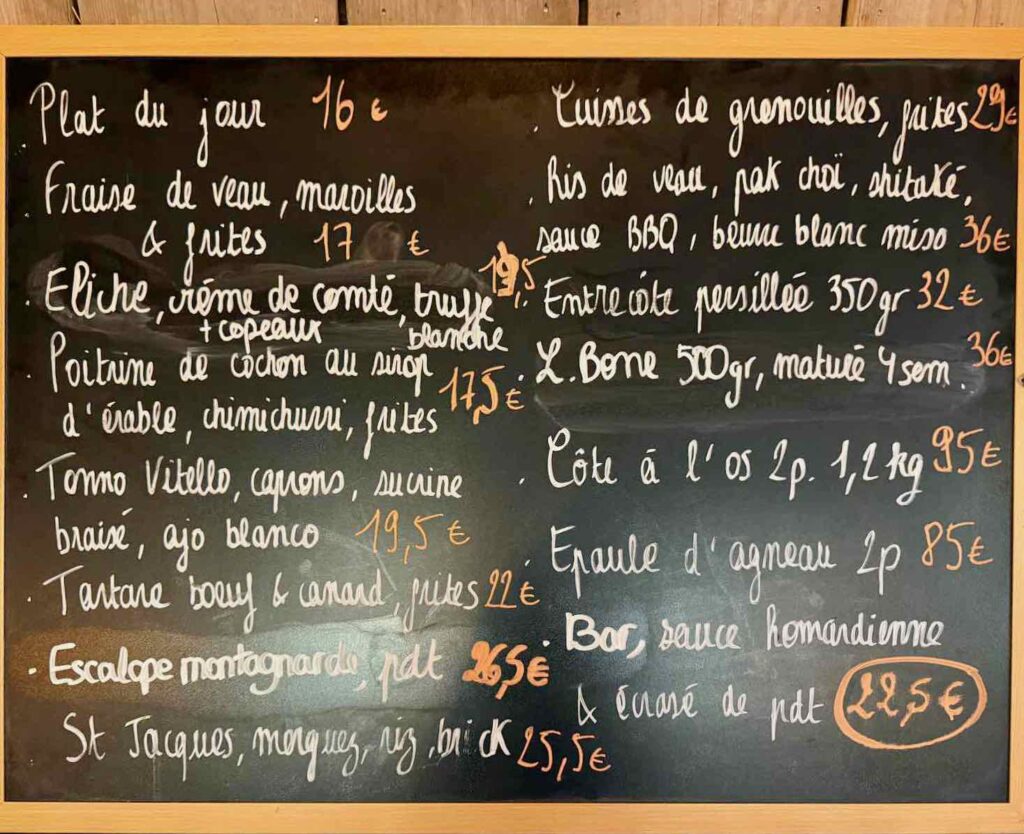 Plat du jour 16 €
. Fraise de veau, maroilles
& frites 17 €
. Eliche, crème de comté, truffe 19,5
+ copeaux blanche
. Poitrine de cochon au sirop
d'érable, chimichurri, frites 17,5 €
. Tonno Vitello, caprons, sucrine
braisé, ajo blanco 19,5 €
. Tartare boeuf & canard, frites 22 €
. Escalope montagnarde, pdt 26,5 €
St Jacques, merguez, riz, brick 25,5 €
. Cuisses de grenouilles, frites 29 €
. Ris de veau, pak choï, shitaké,
sauce BBQ, beurre blanc miso 36 €
. Entrecôte persillée 350gr 32 €
. L.Bone 500gr, maturé 4 sem. 36 €
. Côte à l'os 2p. 1,2 kg 95 €
Epaule d'agneau 2p 85 €
. Bar, sauce homardienne
& écrasé de pdt 22,5 €